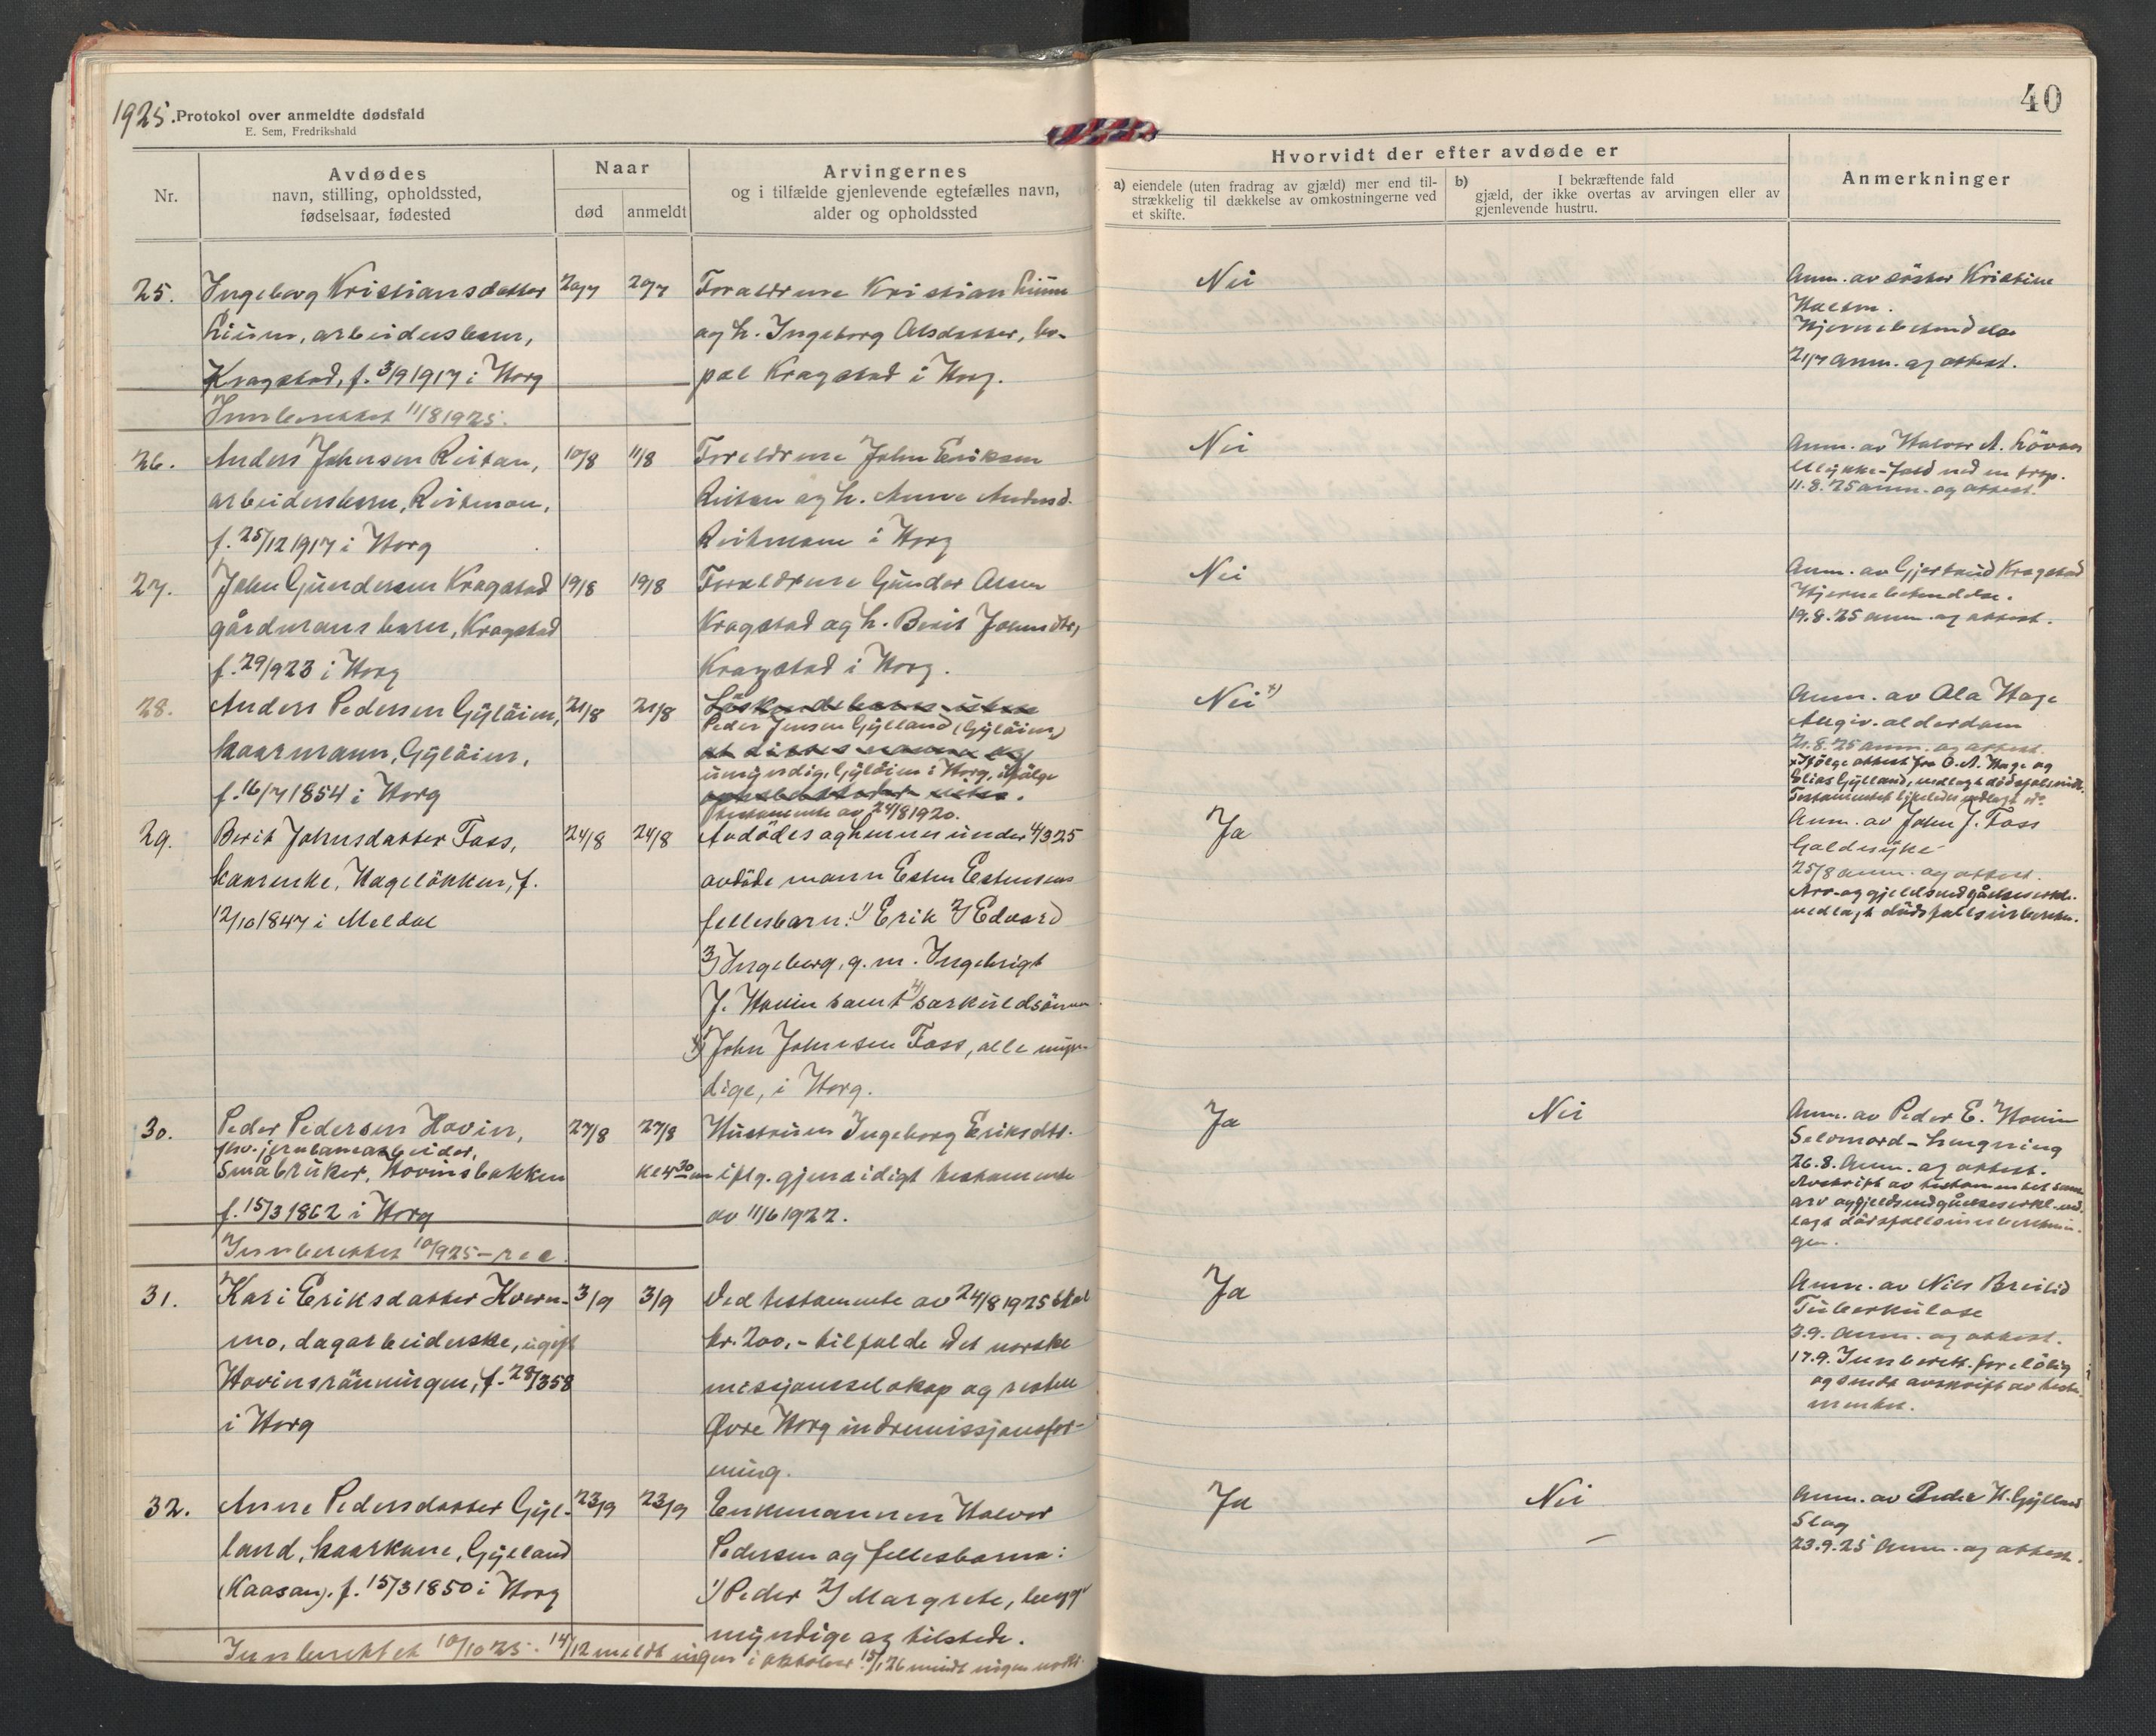 1925. Protokol over anmeldte dødsfald
E. Sem, Fredrikshald
40
Nr.
Avdødes
navn, stilling, opholdssted,
fødselsaar, fødested
Naar
død
anmeldt
Arvingernes
og i tilfælde gjenlevende egtefælles navn,
alder og opholdssted
Hvorvidt der efter avdøde er
a) eiendele (uten fradrag av gjæld) mer end til-
strækkelig til dækkelse av omkostningerne ved
et skifte.
b) I bekræftende fald
gjæld, der ikke overtas av arvingen eller av
gjenlevende hustru.
Anmerkninger
25.
Ingeborg Kristiansdatter
Liium, arbeidersbarn,
Kragstad, f. 3/9 1917 i Horg
20/7
20/7
Foreldrene Kristian Liium
og h. Ingeborg Olsdatter, bo-
pæl Kragstad i Horg.
Nei
Anm. av søster Kristine
Hjernebetendelse
21/7 anm. og attest.
Innberettet 11/8 1925.
26.
Anders Johnsen Reitan,
arbeidersbarn, Reitmoen,
f. 25/12 1917 i Horg
10/8
11/8
Foreldrene John Eriksen
Reitan og h. Anne Andersd.
Reitmoen i Horg
Nei
Anm. av Halvor A. Løvaas
Ulykke - fald ned en trap.
11.8.25 anm. og attest.
27.
John Gundersen Kragstad
gårdmans barn, Kragstad
f. 29/9 23 i Horg
19/8
19/8
Foreldrene Gunder Olsen
Kragstad og h. Berit Johnsdtr,
Kragstad i Horg.
Nei
Anm. av Gjertrud Kragstad
Hjernebetendelse.
19.8.25 anm. og attest.
28.
Anders Pedersen Gyløien,
kaarmann, Gyløien,
f. 16/7 1854 i Horg
21/8
21/8
Søskendebarn uten
Peder Jensen Gylland (Gyløien)
umyndig, Gyløien i Horg, ifølge
testamente av 24/8 1920.
Nei x)
Anm. av Ola Hage
Angiv. alderdom
21.8.25 anm. og attest.
x) Ifølge attest fra O. A. Hage og
Elias Gylland, vedlagt dødsfallsindb.
Testamentet likeledes vedlagt do
29.
Berit Johnsdatter Foss,
kaarenke, Hageløkken, f.
12/10 1847 i Meldal
24/8
24/8
Avdødes og hennes under 4/3 25
avdøde mann Esten Estensens
fellesbarn: 1) Erik 2) Edvard
3) Ingeborg, g. m. Ingebrigt
J. Hovin samt 4) særkuldsønnen
4) John Johnsen Foss, alle myn-
dige, i Horg.
Ja
Anm. av John J. Foss
Galdesyke
25/8 anm. og attest.
Arv- og gjeldsvedgåelseserkl.
vedlagt dødsfallsinberetn.
30.
Peder Pedersen Hovin,
fhv. jernbanearbeider,
Småbruker, Hovinsbakken
f. 15/3 1862 i Horg
27/8
27/8
kl 4 30 em
Hustruen Ingeborg Eriksdtr.
iflg. gjensidigt testamente
av 11/6 1922.
Ja
Nei
Anm. av Peder E. Hovin
Selvmord - hengning
26.8. Anm. og attest.
Avskrift av testamentet samt
arv og gjeldsvedgåelseserkl. ved-
lagt dødsfallsinnberetnin-
gen.
Innberettet 10/9 25 - rec.
31.
Kari Eriksdatter Kvern-
mo, dagarbeiderske, ugift
Hovinsrønningen, f. 28/3 58
i Horg
3/9
3/9
Ved testamente av 24/8 1925 skal
kr. 200,- tilfalde Det norske
misjonsselskap og resten
Øvre Horg indremissjonsfor-
ening.
Ja
Anm. av Nils Breilid
Tuberkulose
3.9. Anm. og attest.
17.9. Innberett. foreløbig
og sendt avskrift av testa-
mentet.
32.
Anne Pedersdatter Gyl-
land, kaarkone, Gylland
(Kaasan), f. 15/3 1850 i Horg
23/9
23/9
Enkemannen Halvor
Pedersen og fellesbarna:
1) Peder 2) Margrete, begge
myndige og tilstede.
Ja
Nei
Anm. av Peder H. Gylland
Slag
23.9.25 Anm. og attest.
Innberettet 10/10 25. 14/12 meldt ingen i oktober. 15/1 26 meldt ingen